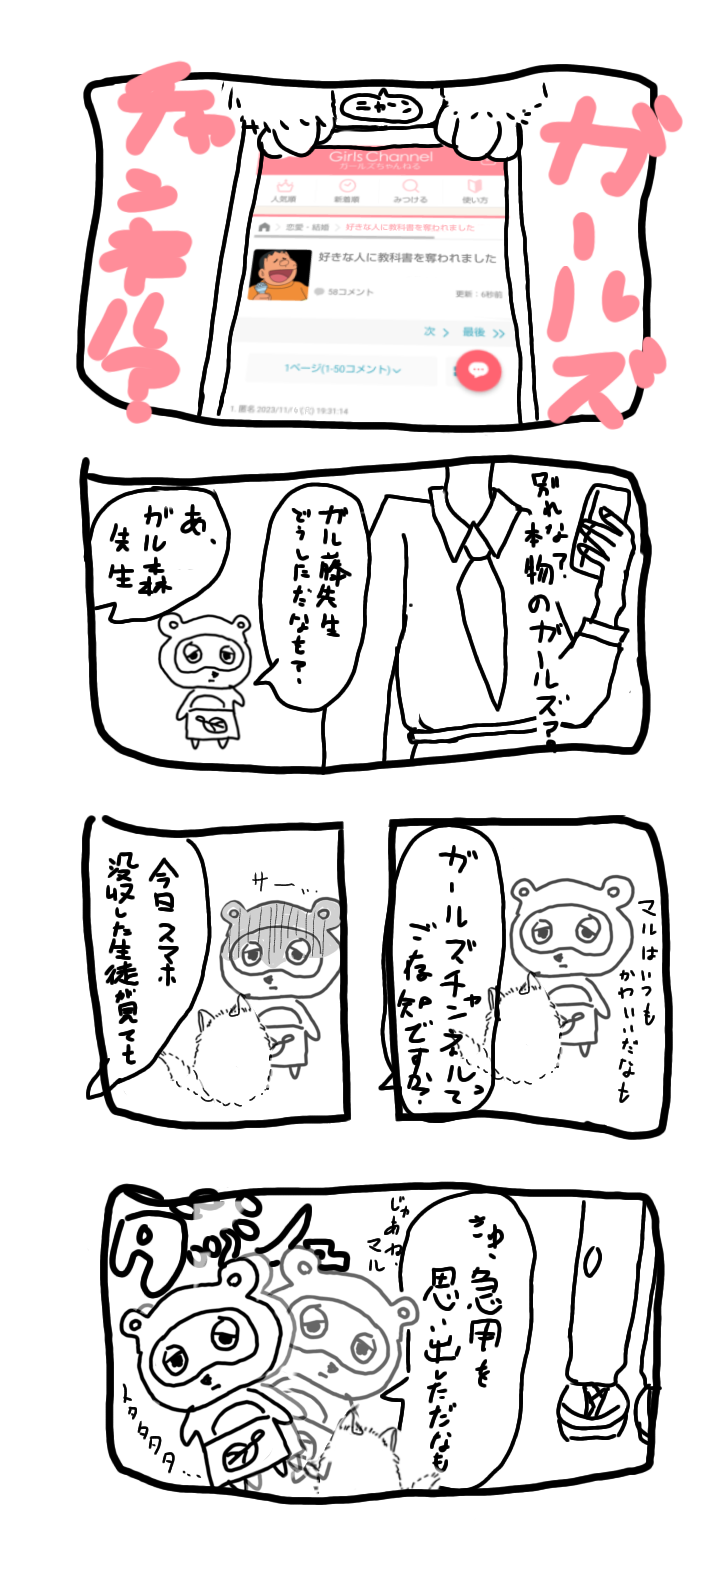 ガールズ
チャンネル?
ニャーン
Girls Channel
ガールズちゃんねる
人気順
新着順
みつける
使い方
恋愛・結婚
好きな人に教科書を奪われました
好きな人に教科書を奪われました
58コメント
更新：6秒前
次
最後
1ページ(1-50コメント)
1. 匿名 2023/11/
19:31:14
別れな?
本物のガールズ?
ガル藤先生
どうしただなも?
あ、
ガル森
先生
マルはいつも
かわいいだなも
ガールズチャンネルって
ご存知ですか?
サーッ…
今日スマホ
没収した生徒が見てても
きゅ、急用を
思い出しただなも
じゃあね
マル
トタタタタ…